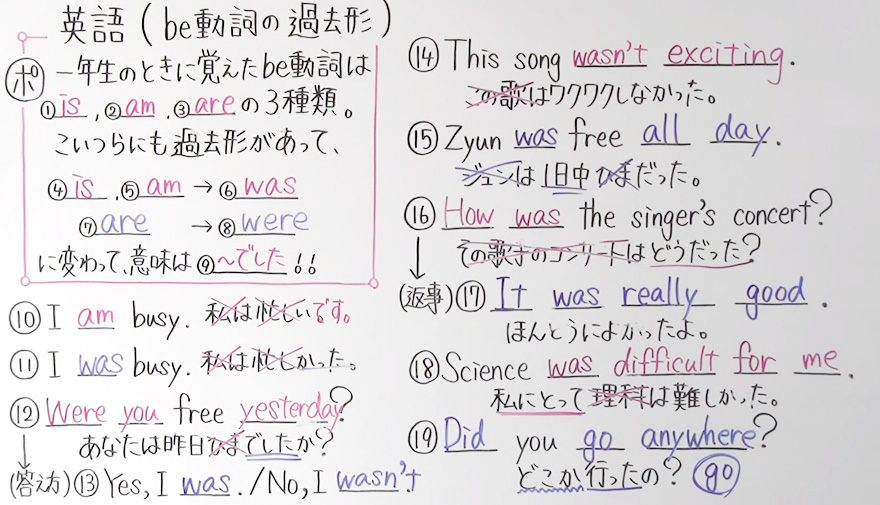 英語(be動詞の過去形)
ポ 一年生のときに覚えたbe動詞は
①is,②am,③areの3種類。
こいつらにも過去形があって、
④is,⑤am→⑥was
⑦are→⑧were
に変わって、意味は⑨〜でした!!
⑩I am busy. 私は忙しいです。
⑪I was busy. 私は忙しかった。
⑫Were you free yesterday?
あなたは昨日ひまでしたか?
(答え方)⑬Yes, I was./No, I wasn't
⑭This song wasn't exciting.
この歌はワクワクしなかった。
⑮Zyun was free all day.
ジュンは1日中ひまだった。
⑯How was the singer's concert?
その歌手のコンサートはどうだった?
(返事)⑰It was really good.
ほんとうによかったよ。
⑱Science was difficult for me.
私にとって理科は難しかった。
⑲Did you go anywhere?
どこか行ったの? go